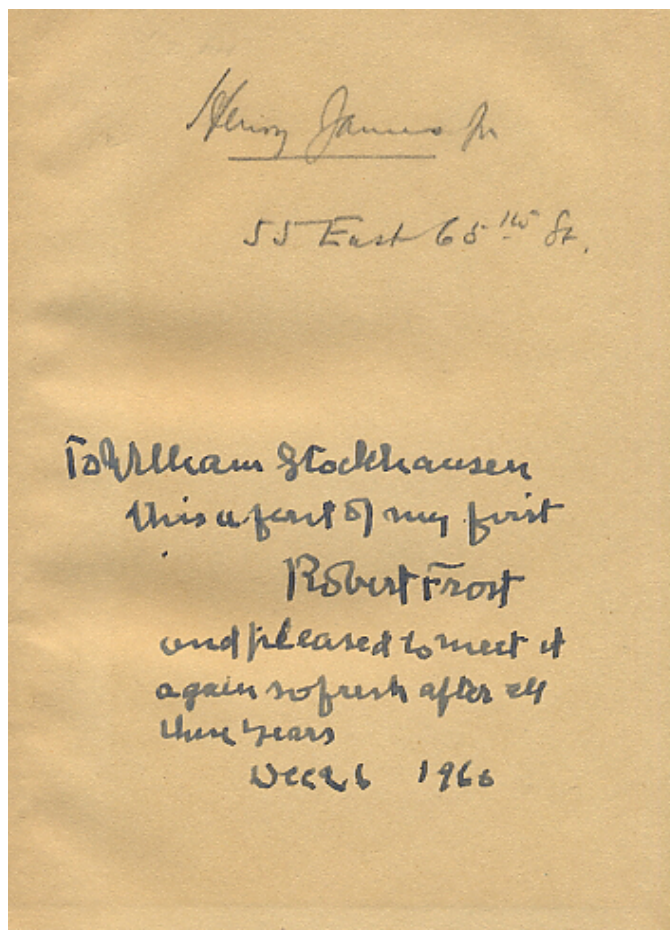 Henry James Jr
55 East 65th St.
To William Stockhausen
this a part of my first
Robert Frost
and pleased to meet it
again so fresh after all
these years
Dec 26 1960